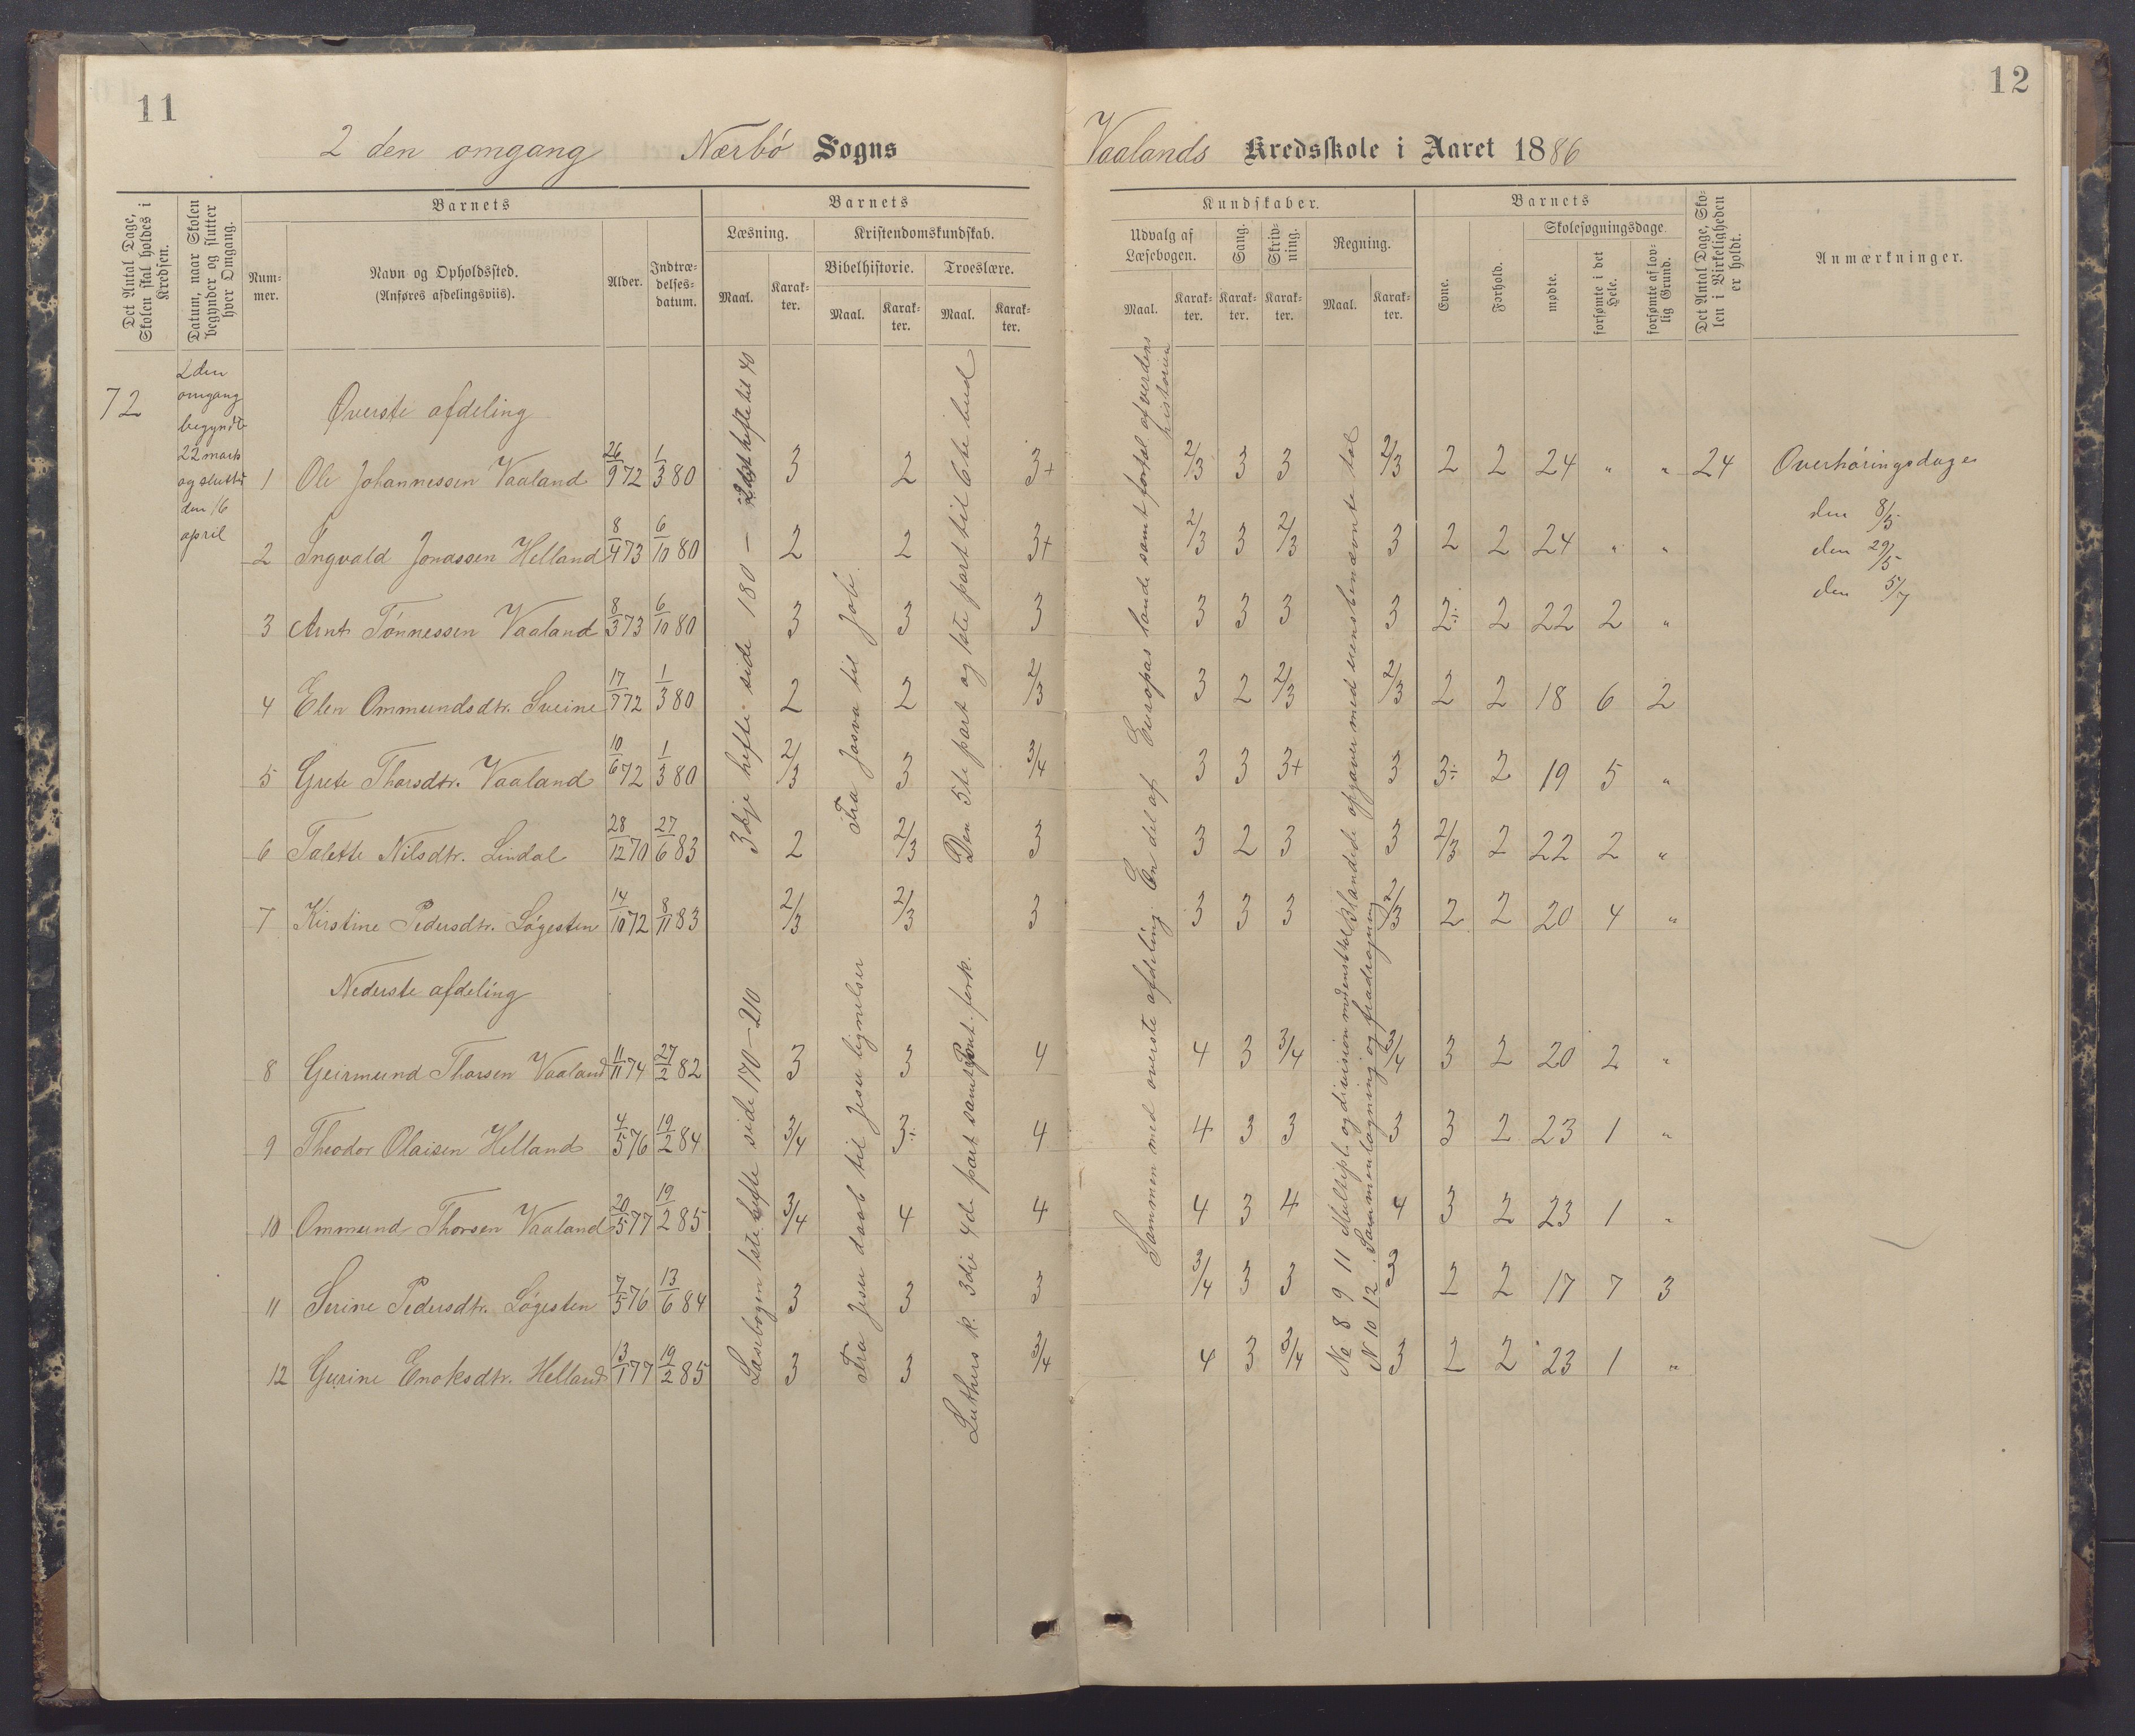 11
2 den omgang Nærbö Sogns
Det Antal Dage, Skolen skal holdes i Kredsen.
Datum, naar Skolen begynder og slutter hver Omgang.
Barnets
Nummer.
Navn og Opholdssted.
(Anføres afdelingsviis).
Alder.
Indtrædelsesdatum.
Barnets
Læsning.
Kristendomskundskab.
Bibelhistorie.
Troeslære.
Maal. Karakter. Maal. Karakter. Maal. Karakter.
72
2den
omgang
begyndte
22 marts
og sluttet
den 16
april
Øverste afdeling
1 Ole Johannessen Vaaland 26/9 72 1/3 80 3 2 3+
2 Ingvald Jonassen Helland 8/4 73 6/10 80 2 2 3+
3 Arnt Tönnessen Vaaland 8/3 73 6/10 80 3 3 3
4 Elen Ommundsdtr. Sveine 17/7 72 1/3 80 2 2 2/3
5 Grete Thorsdtr. Vaaland 10/6 72 1/3 80 2/3 3 3/4
6 Talette Nilsdtr. Lindal 28/12 70 27/6 83 2 2/3 3
7 Kirstine Pedersdtr. Lögesten 14/10 72 8/11 83 2/3 2/3 3
Nederste afdeling
8 Geirmund Thorsen Vaaland 11/11 74 27/2 82 3 3 4
9 Theodor Olaisen Helland 4/5 76 19/2 84 3/4 3÷ 4
10 Ommund Thorsen Vaaland 20/5 77 19/2 85 3/4 4 4
11 Serine Pedersdtr. Lögesten 7/5 76 13/6 84 3 3 3
12 Gurine Enoksdtr. Helland 13/1 77 19/2 85 3 3 3/4
3dje hefte side 180 – hefte til 40
Fra Josva til Job
Den 5te part og 1ste part til 6te bud
Læsebogen 1ste hefte side 170–210
Fra Jesu daab til Jesu lignelser
Luthers k. 3die 4de part samt Pont. fork.
12
Vaalands Kredsskole i Aaret 1886
Kundskaber.
Udvalg af Læsebogen.
Sang.
Skrivning.
Regning.
Maal. Karakter. Karakter. Karakter. Maal. Karakter.
Barnets
Evne.
Forhold.
Skolesøgningsdage.
mødte.
forsømte i det Hele.
forsømte af lovlig Grund.
Det Antal Dage, Skolen i Virkeligheden er holdt.
Anmærkninger.
2/3 3 3 2/3 2 2 24 " " 24 Overhöringsdage
2/3 3 2/3 3 2 2 24 " "
3 3 3 3 2÷ 2 22 2 "
3 2 2/3 2/3 2 2 18 6 2
3 3 3+ 3 3÷ 2 19 5 "
3 2 3 3 2/3 2 22 2 "
3 3 3 2/3 2 2 20 4 "
4 3 3/4 3/4 3 2 20 2 "
4 3 3 3 3 2 23 1 "
4 3 4 4 3 2 23 1 "
3/4 3 3 3 2 2 17 7 3
4 3 3/4 3 2 2 23 1 "
den 8/5
den 29/5
den 5/7
En del af Europas lande samt fortal. af verdens
historien
Sammen med overste afdeling
Blandede opgaver med eensbenævnte tal
No 8 9 11 Multipl. og division
N 10 12 Sammenlægning og fradragning